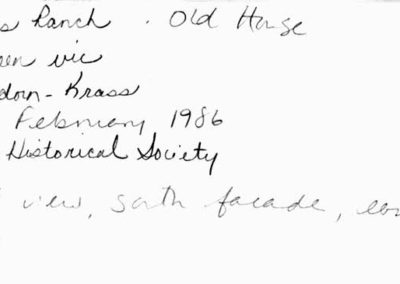 s Ranch . Old House
en vic
don - Krass
February 1986
Historical Society
view, south facade,